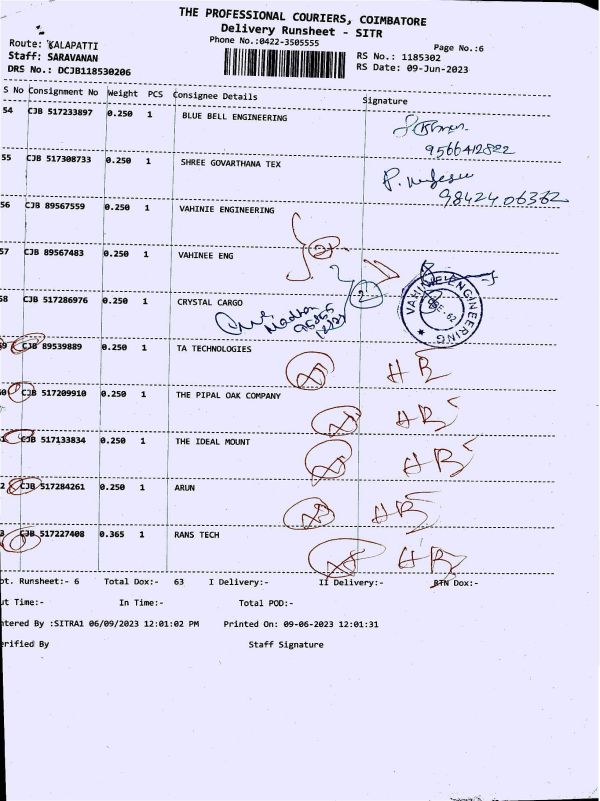 THE PROFESSIONAL COURIERS, COIMBATORE
Delivery Runsheet - SITR
Phone No.:0422-3505555
Page No.:6
Route: KALAPATTI
Staff: SARAVANAN
DRS No.: DCJB118530206
RS No.: 1185302
RS Date: 09-Jun-2023
S No Consignment No Weight PCS Consignee Details Signature
54 CJB 517233897 0.250 1 BLUE BELL ENGINEERING
9566412822
55 CJB 517308733 0.250 1 SHREE GOVARTHANA TEX
9842406362
56 CJB 89567559 0.250 1 VAHINIE ENGINEERING
57 CJB 89567483 0.250 1 VAHINEE ENG
2
58 CJB 517286976 0.250 1 CRYSTAL CARGO
VAHINEE ENGINEERING
9 CJB 89539889 0.250 1 TA TECHNOLOGIES
0 CJB 517209910 0.250 1 THE PIPAL OAK COMPANY
CJB 517133834 0.250 1 THE IDEAL MOUNT
2 CJB 517284261 0.250 1 ARUN
3 CJB 517227408 0.365 1 RANS TECH
ot. Runsheet:- 6 Total Dox:- 63 I Delivery:- II Delivery:- RTN Dox:-
ut Time:- In Time:- Total POD:-
ntered By :SITRA1 06/09/2023 12:01:02 PM Printed On: 09-06-2023 12:01:31
erified By Staff Signature